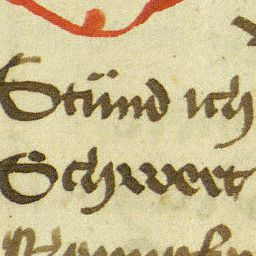 Stünd ich
Schwert